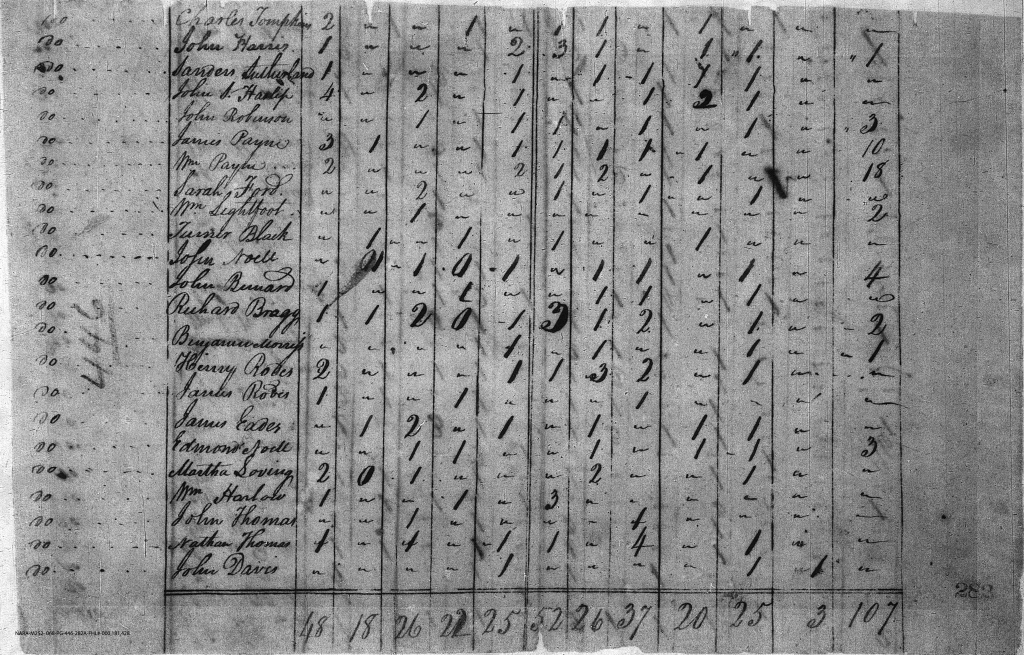 Charles Tompkins 2 " " 1 " 1 1 " 1 " " "
Do John Harris 1 " " " 2 3 1 " 1 " 1 " " 1
Do Sanders Sutherland 1 " " " 1 " 1 1 1 " "
Do John S. 4 " 2 " 1 " " 1 2 1 " "
Do John Robinson " " 1 " 1 1 " 1 " 1 " " 3
Do James Payne 3 1 " " 1 1 1 1 1 " " 10
Do Wm Payne 2 " " " 2 " 2 " 1 " " 18
Do Sarah Ford " " 2 " " 1 " 1 " 1 " "
Do Wm Lightfoot " " 1 " " " " " " " " 2
Do Turner Black " 1 " 1 " 1 " " 1 " " "
Do John Noell " 1 0 1 " 1 1 " 1 " 4
Do John Bernard 1 " " 1 " " 1 1 " 1 " "
Do Richard Bragg 1 1 2 0 1 3 1 2 " 1 " 2
Do Benjamin Morris " " . " 1 " 1 " " 1 " " 1
Do Henry Rodes 2 " " " 1 1 3 2 " 1 " "
Do James Rodes 1 " " 1 " " " 1 " " " "
Do James Eades " 1 2 " 1 " 1 " 1 1 " "
Do Edmond Noell " " 1 1 " " 1 " 1 1 " 3
Do Martha Loving 2 0 1 " " " 2 " " 1 " "
Do Wm Harlow 1 " " 1 " 3 " " " " " "
Do John Thomas " " 1 " " " " 1 " " " "
Do Nathan Thomas 1 " 1 " 1 1 " 4 " 1 " "
Do John Daves " " " " 1 " " " " 1 1 "
48 18 26 22 25 52 26 37 20 25 3 107
446
282